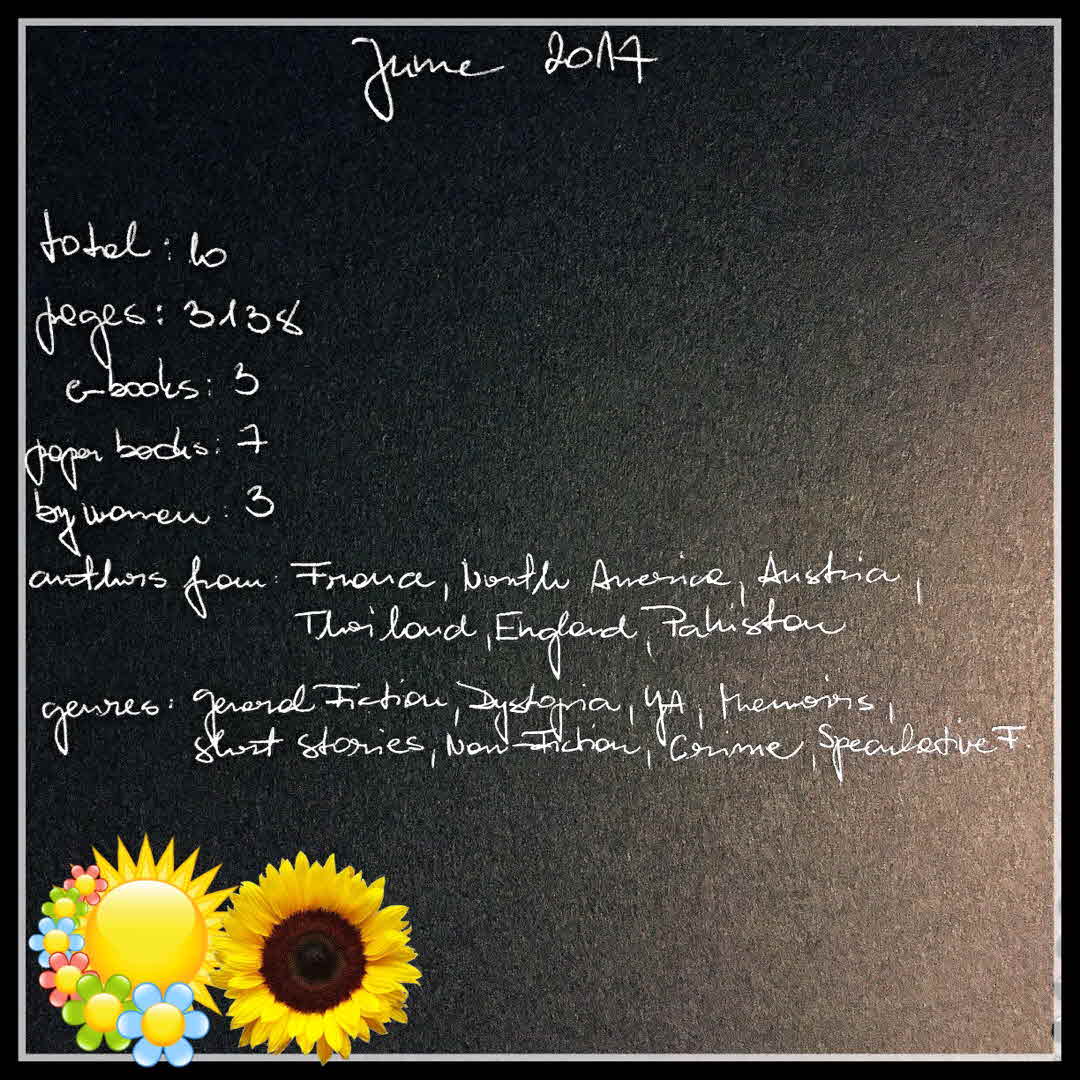 June 2017
total: 10
pages: 3138
e-books: 3
paper books: 7
by women: 3
authors from: France, North America, Austria,
Thailand, England, Pakistan
genres: general Fiction, Dystopia, YA, Memoirs,
short stories, Non-Fiction, Crime, Speculative F.